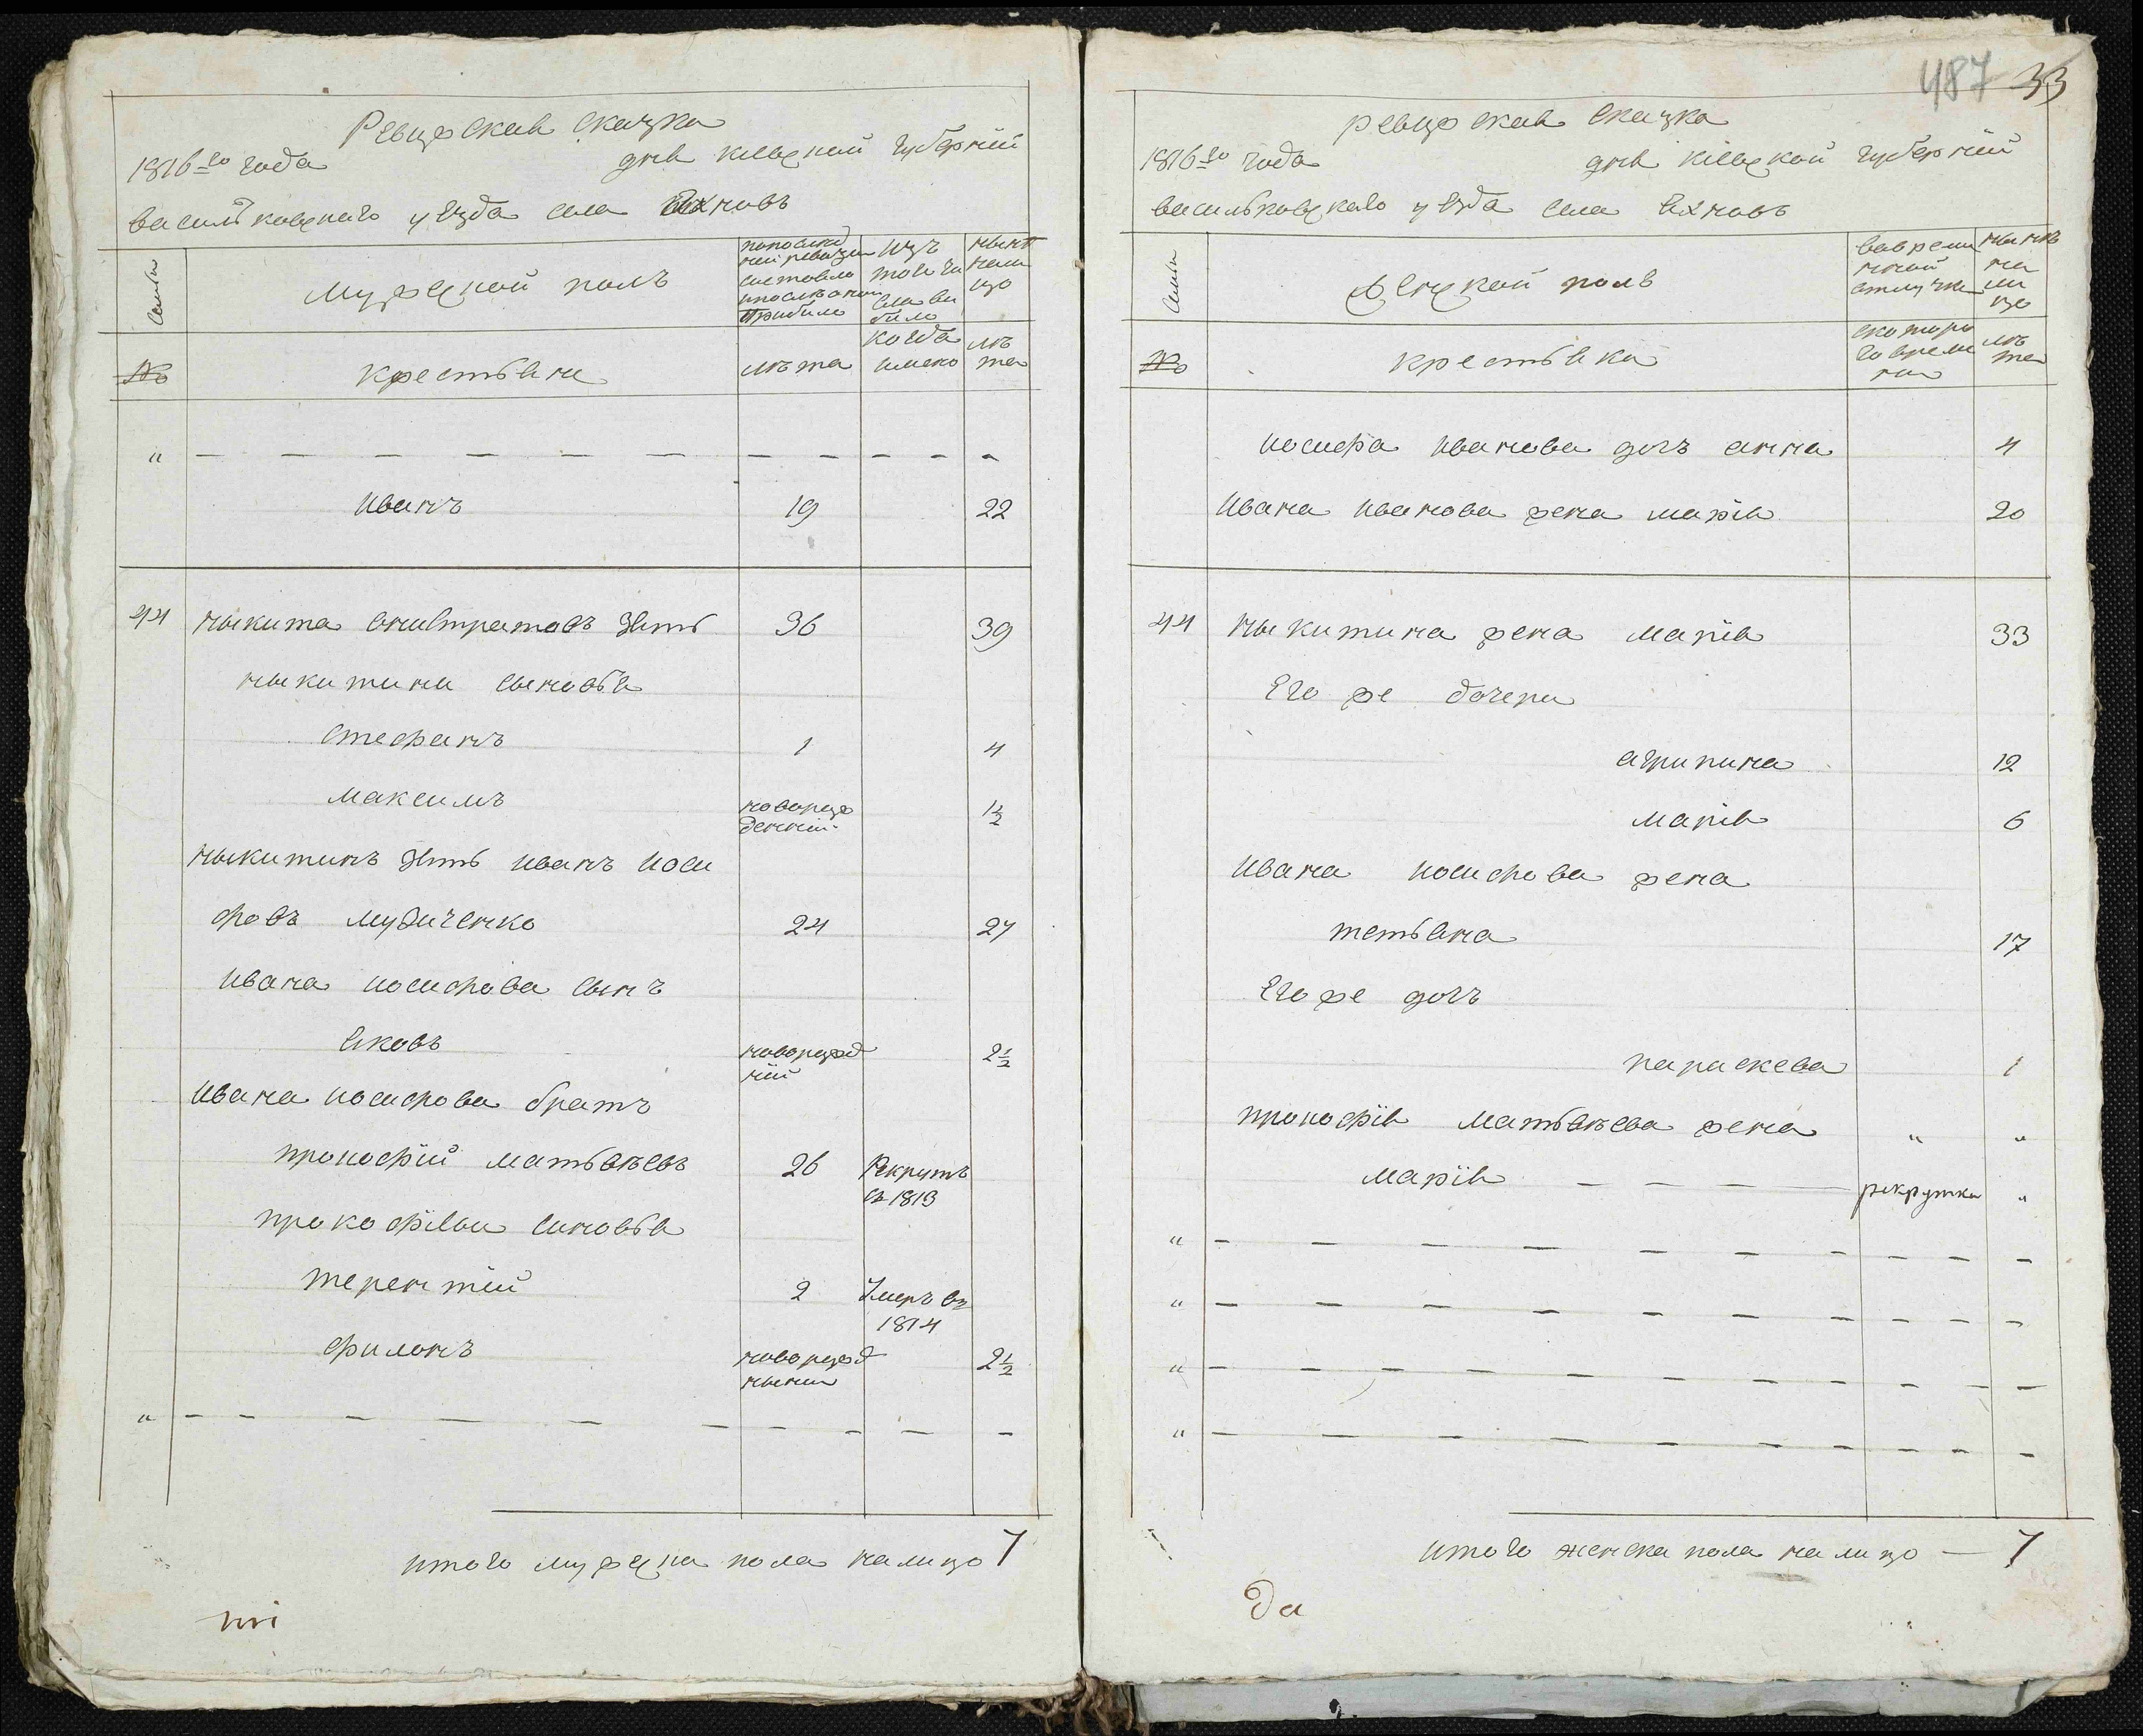 Ревизская сказка
1816го года
для киевской губернии
васильковскаго уезда села Яхновъ
Семьи
Мужеской полъ
попоследней ревизии состояло ипосле оной прибило
Изъ того числа вибило
нынѣ налицо
№
крестьяне
лѣта
когда имено
лѣта
"
Иванъ 19 22
44 ныкита онистратовъ зять 36 39
ныкитини сыновья
Стефанъ 1 4
Максимъ новорожденний 1½
ныкитинъ зять иванъ иоси
фовъ мудиченко 24 27
Ивана иосифова сынъ
Яковъ новорожд ний 2½
Ивана иосифова братъ
прокофій матьвѣевъ 26 Рекрутъ
въ 1813
прокофіеви синовья
терентій 2 Умеръ въ
1814
филонъ новорожд 2½
"
итого мужеска пола налицо 7
487 33
Ревизская сказка
1816го года
для кіевской губерніи
васильковскаго уезда села Яхновъ
Семьи
Женской полъ
вовременной отлучке
нынѣ налицо
№
крестьянки
скоторого времени
лѣта
иосифа иванова дочъ анна 4
Ивана иванова жена марія 20
44 ныкитина жена марія 33
Его же дочери
агрипина 12
марія 6
Ивана иосифова жена
тетьяна 17
Его же дочъ
параскева 1
прокофія матьвѣева жена " "
марія рекрутка "
"
"
"
"
итого женска пола на лицо — 7
Да